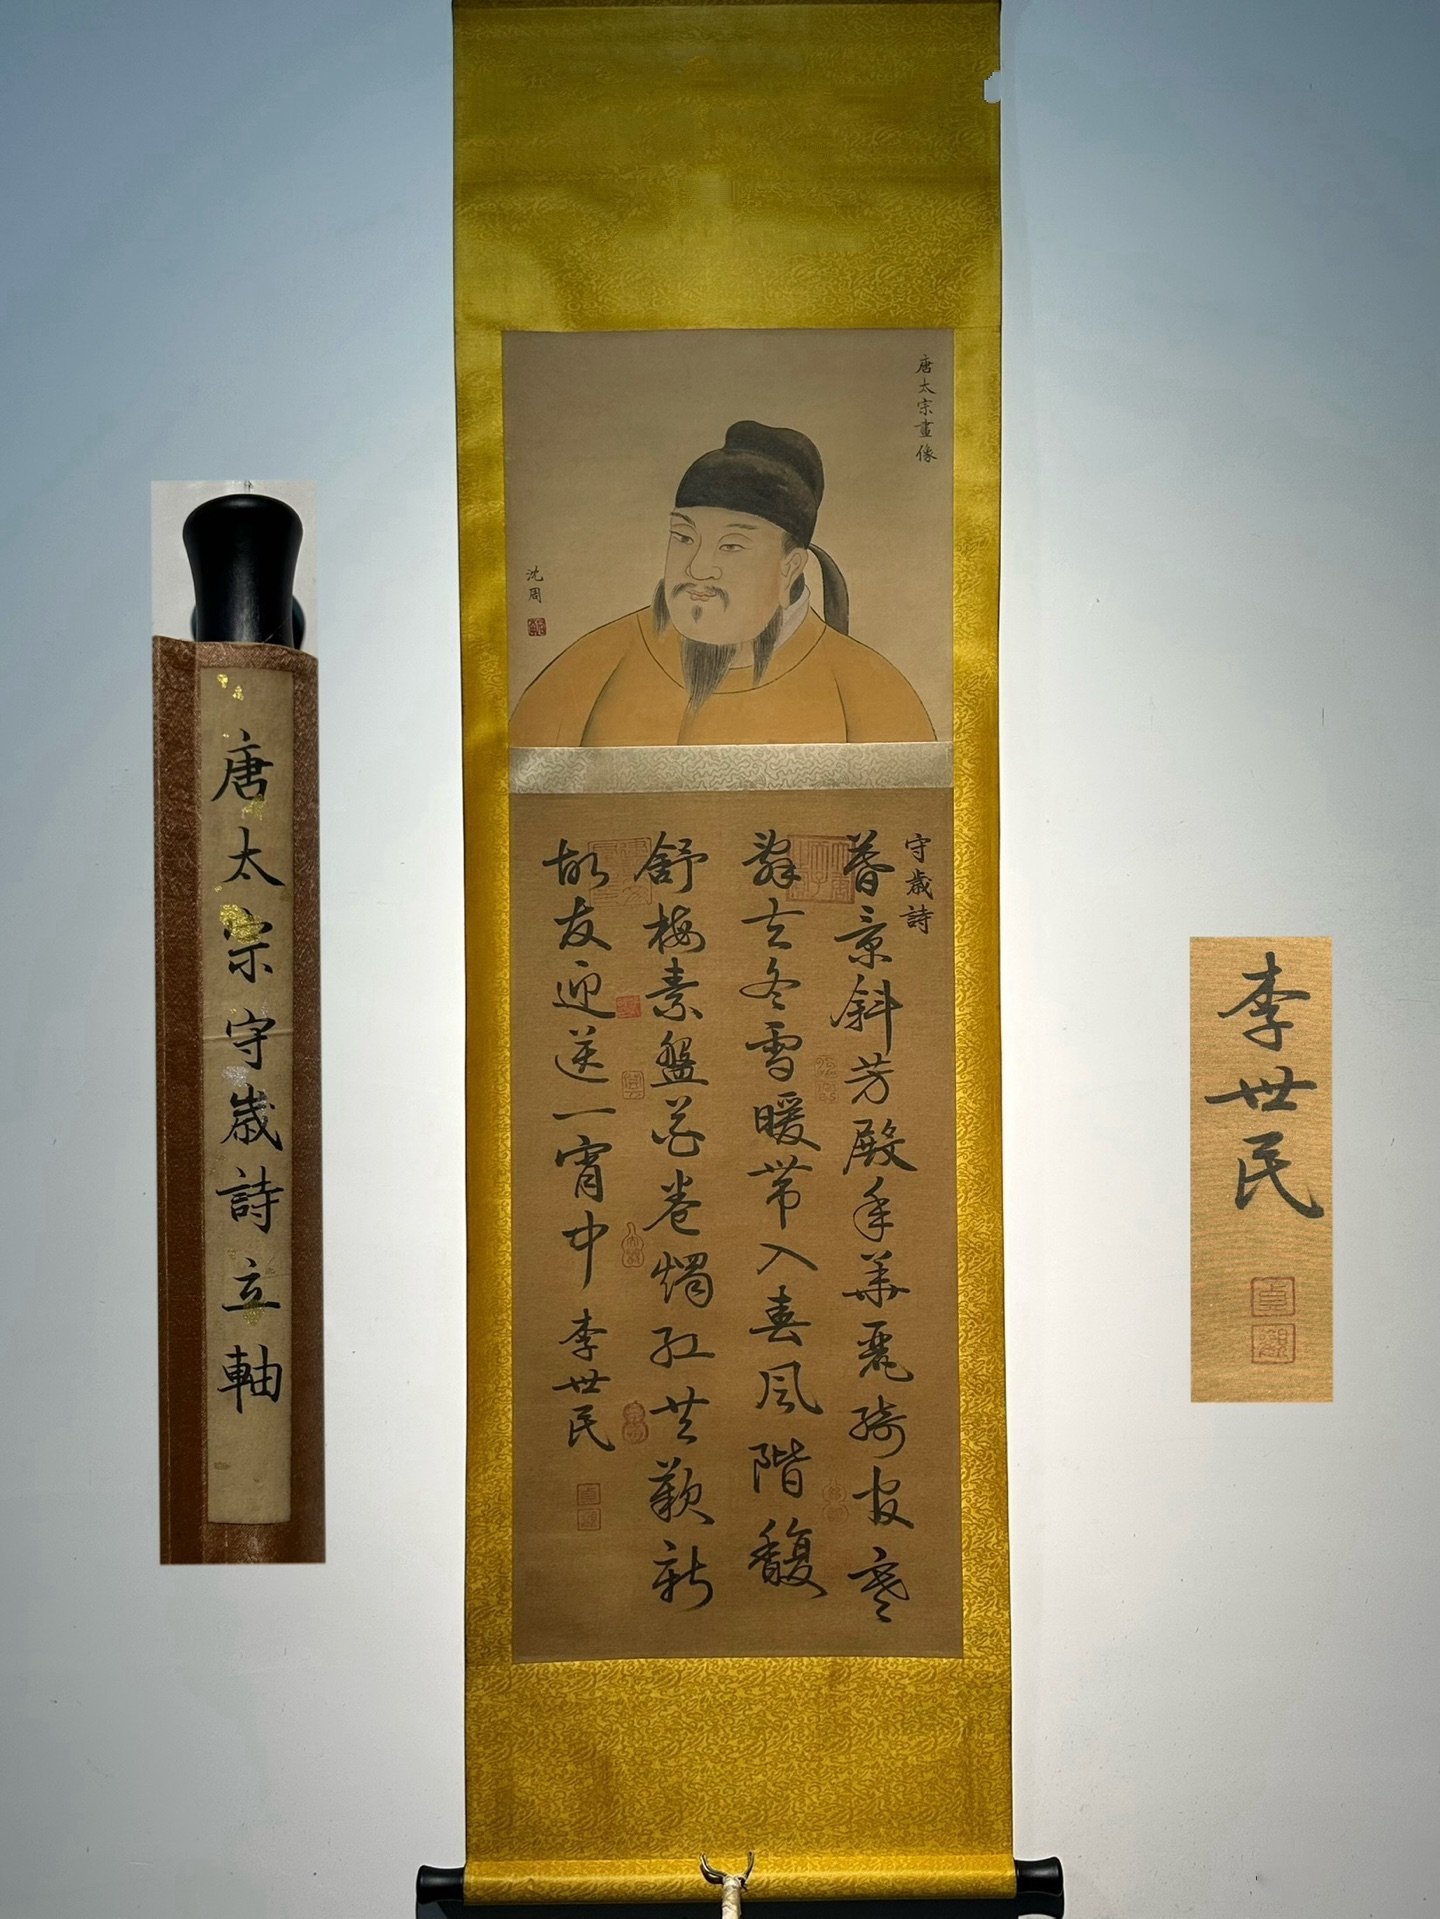 唐太宗畫像
沈周
守歲詩
暮景斜芳殿年華麗綺宮寒
辭去冬雪暖帶入春風階馥
舒梅素盤花卷燭紅共歡新
故友迎送一宵中
李世民
唐太宗守歲詩立軸
李世民
貞觀